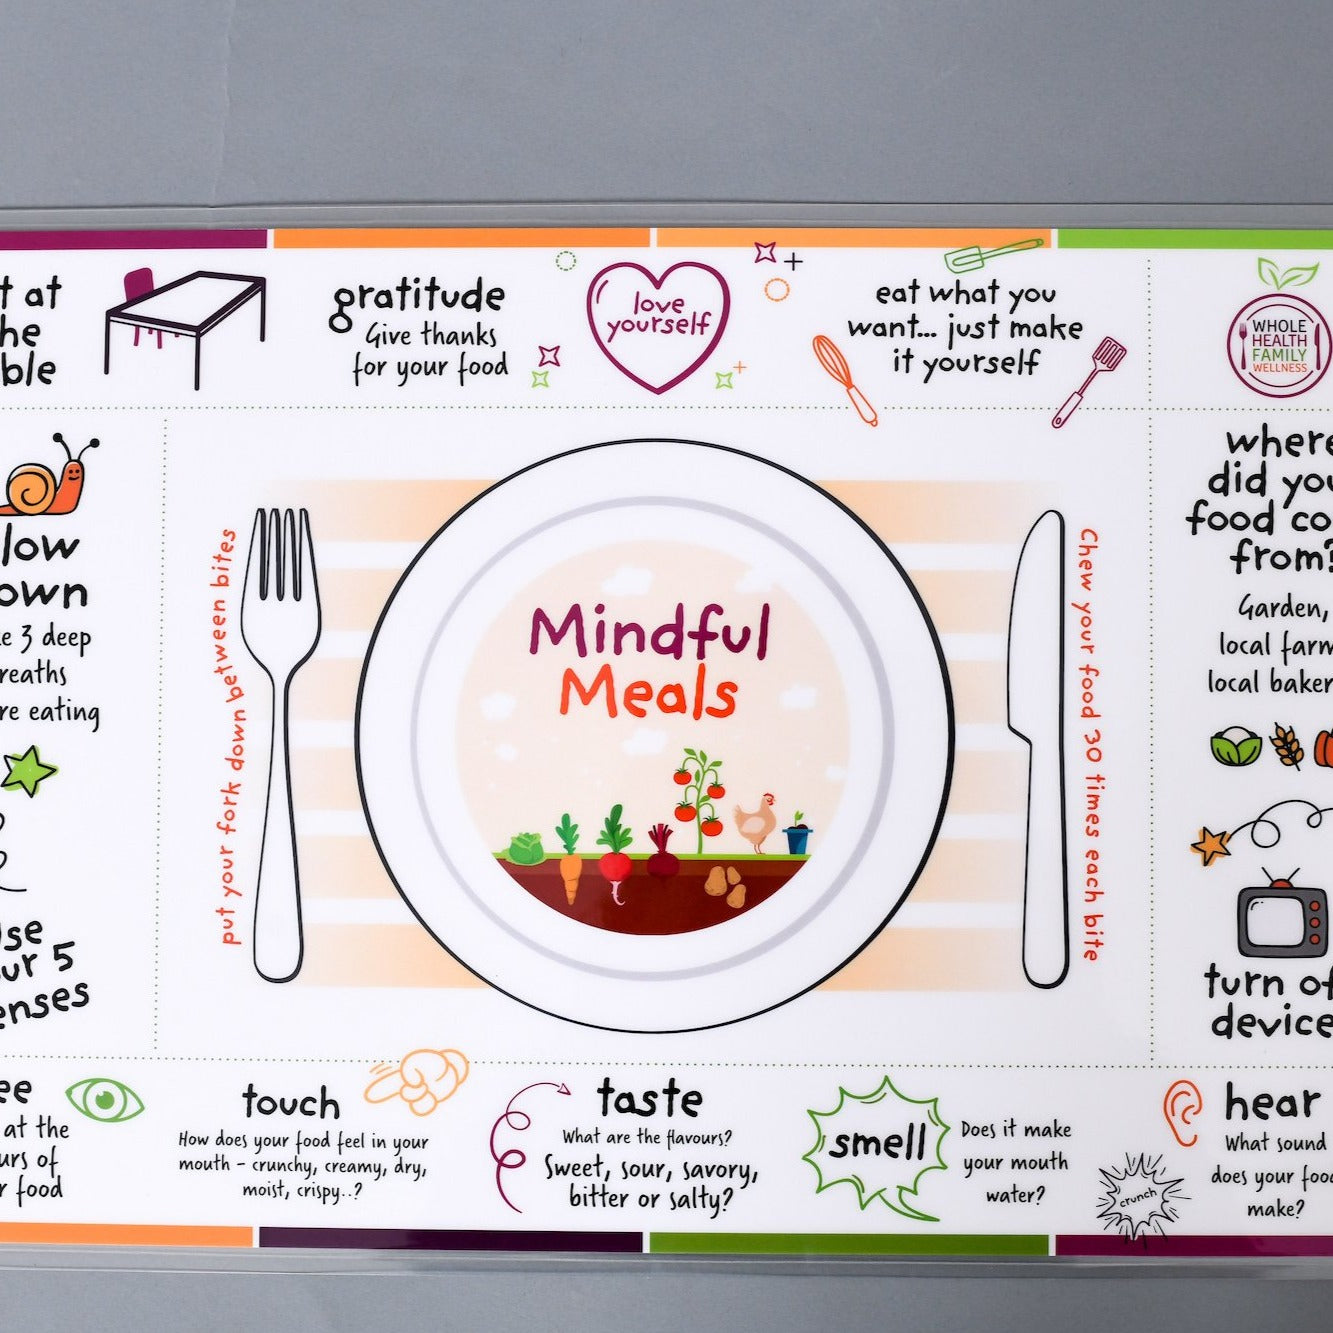 t at
he
ble
gratitude
Give thanks
for your food
love
yourself
eat what you
want... just make
it yourself
WHOLE
HEALTH
FAMILY
WELLNESS
low
own
e 3 deep
reaths
re eating
se
ur 5
enses
put your fork down between bites
Mindful
Meals
Chew your food 30 times each bite
where
did you
food co
from?
Garden,
local farm
local baker
turn of
device
ee
at the
urs of
r food
touch
How does your food feel in your
mouth - crunchy, creamy, dry,
moist, crispy..?
taste
What are the flavours?
Sweet, sour, savory,
bitter or salty?
smell
Does it make
your mouth
water?
crunch
hear
What sound
does your food
make?